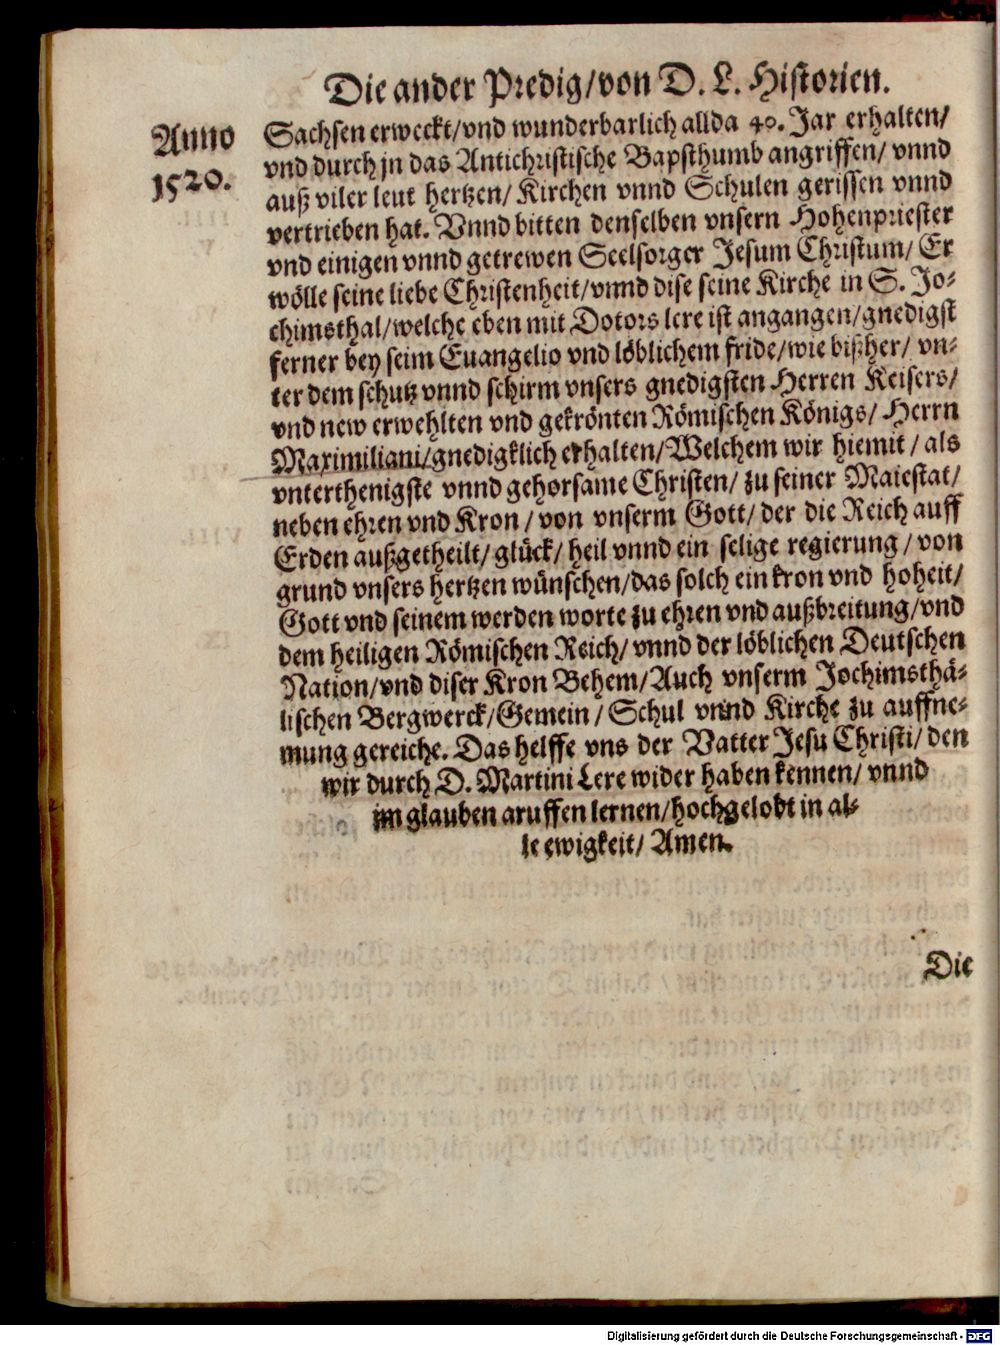 Die ander Predig/von D. L. Historien.
Anno
1520.
Sachsen erweckt/vnd wunderbarlich allda 40. Jar erhalten/
vnd durch jn das Antichristische Bapsthumb angriffen/ vnnd
auß viler leut hertzen/ Kirchen vnnd Schulen gerissen vnnd
vertrieben hat. Vnnd bitten denselben vnsern Hohenpriester
vnd einigen vnnd getrewen Seelsorger Jesum Christum/ Er
wölle seine liebe Christenheit/vnnd dise seine Kirche in S. Jo-
chimsthal/welche eben mit Dotors lere ist angangen/gnedigst
ferner bey seim Euangelio vnd löblichem fride/wie bißher/ vn-
ter dem schutz vnnd schirm vnsers gnedigsten Herren Keisers/
vnd new erwehlten vnd gekrönten Römischen Königs/ Herrn
Maximiliani/gnedigklich erhalten/Welchem wir hiemit/ als
vnterthenigste vnnd gehorsame Christen/ zu seiner Maiestat/
neben ehren vnd Kron/ von vnserm Gott/ der die Reich auff
Erden außgetheilt/ glück/ heil vnnd ein selige regierung/ von
grund vnsers hertzen wünschen/das solch ein kron vnd hoheit/
Gott vnd seinem werden worte zu ehren vnd außbreitung/vnd
dem heiligen Römischen Reich/ vnnd der löblichen Deutschen
Nation/vnd diser Kron Behem/Auch vnserm Jochimsthä-
lischen Bergwerck/Gemein/ Schul vnnd Kirche zu auffne-
mung gereiche. Das helffe vns der Vatter Jesu Christi/ den
wir durch D. Martini Lere wider haben kennen/ vnnd
im glauben aruffen lernen/hochgelobt in al-
le ewigkeit/ Amen.
Die
Digitalisierung gefördert durch die Deutsche Forschungsgemeinschaft - DFG